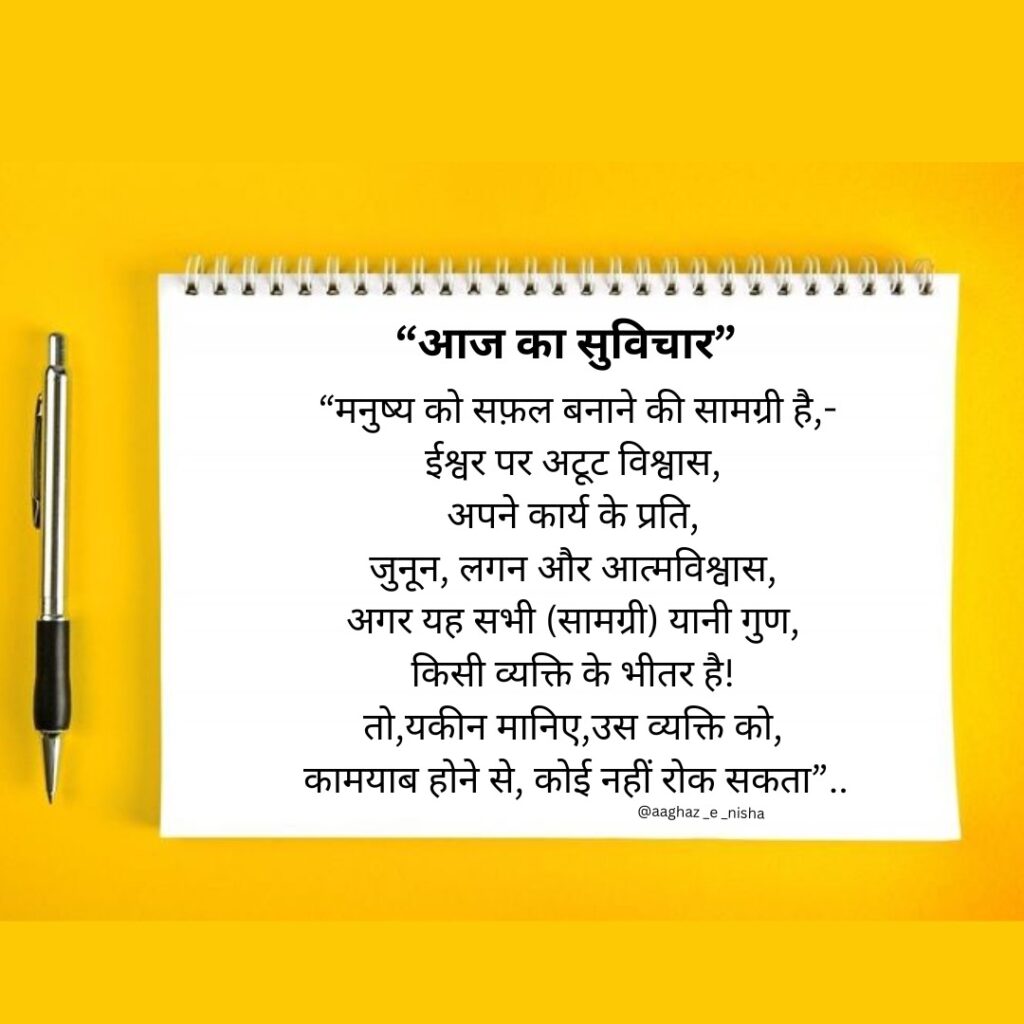 “आज का सुविचार”
“मनुष्य को सफ़ल बनाने की सामग्री है,-
ईश्वर पर अटूट विश्वास,
अपने कार्य के प्रति,
जुनून, लगन और आत्मविश्वास,
अगर यह सभी (सामग्री) यानी गुण,
किसी व्यक्ति के भीतर है!
तो,यकीन मानिए,उस व्यक्ति को,
कामयाब होने से, कोई नहीं रोक सकता”..
@aaghaz_e_nisha